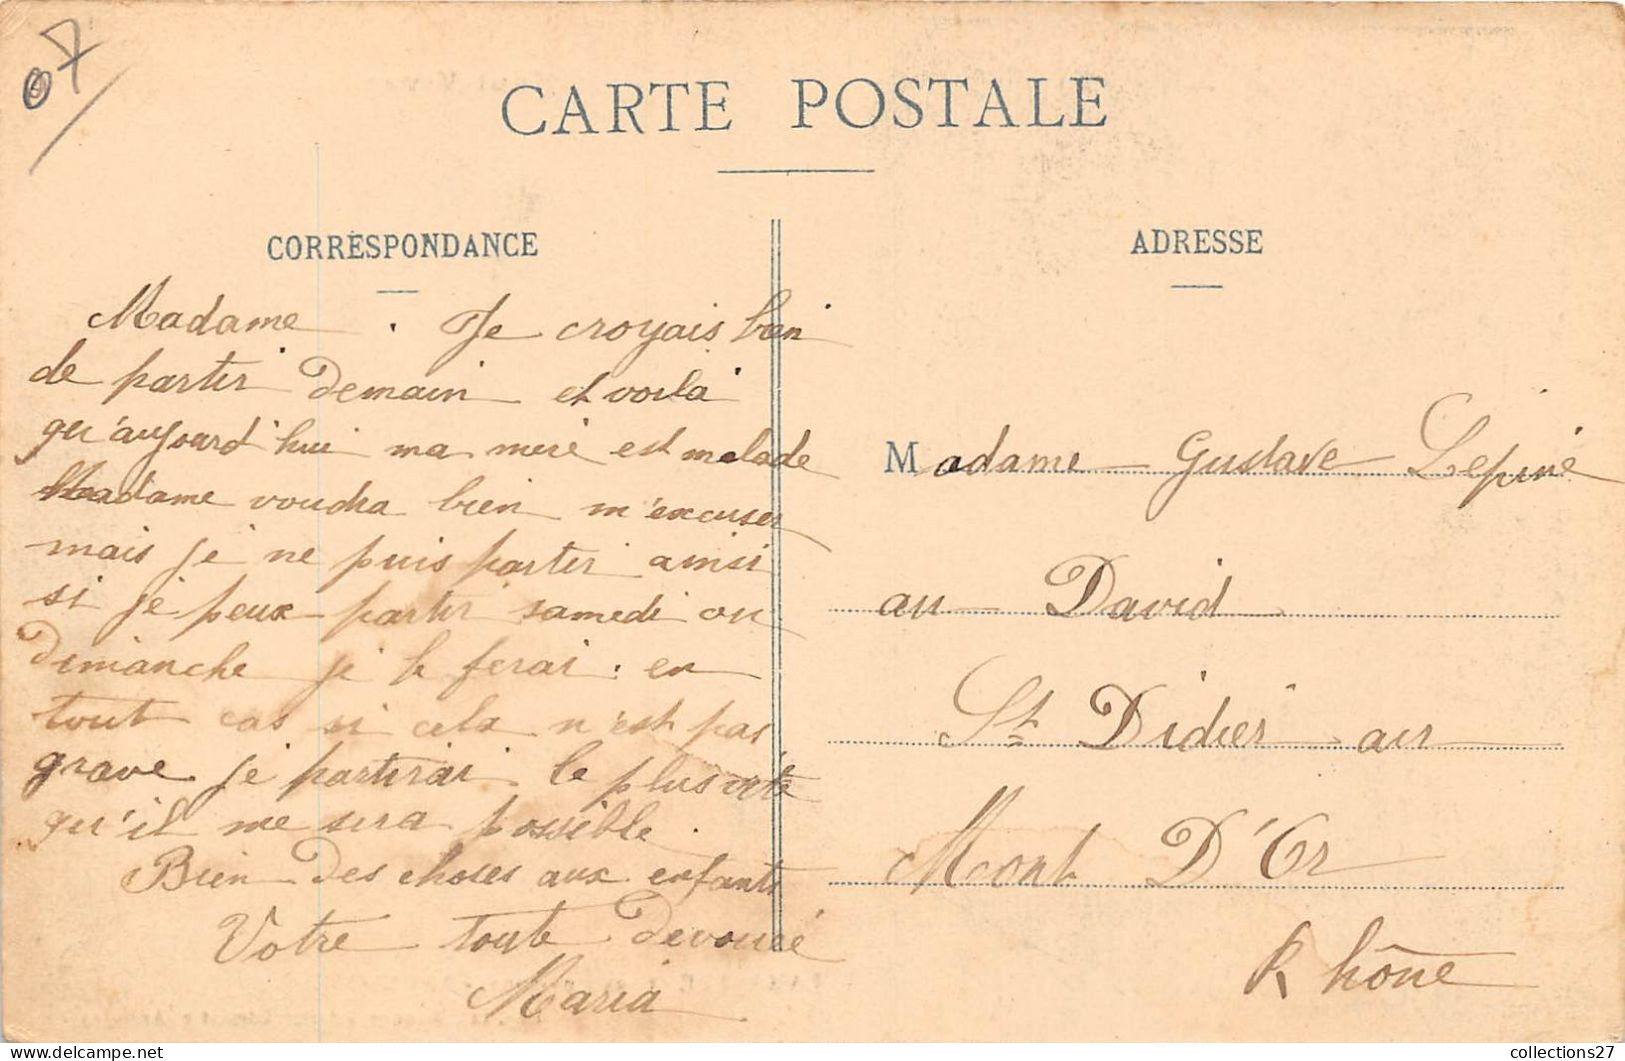 07
CARTE POSTALE
CORRESPONDANCE
Madame. Je croyais bien
de partir demain et voila
qu'aujourd'hui ma mere est malade
Madame voudra bien m'excuser
mais je ne puis partir ainsi
si je peux partir samedi ou
Dimanche je le ferai : en
tout cas si cela n'est pas
grave je partirai le plus vite
qu'il me sera possible.
Bien des choses aux enfants
Votre toute devouée
Maria
ADRESSE
Madame Gustave Lepine
au David
St Didier au
Mont D'Or
Rhône
collections27